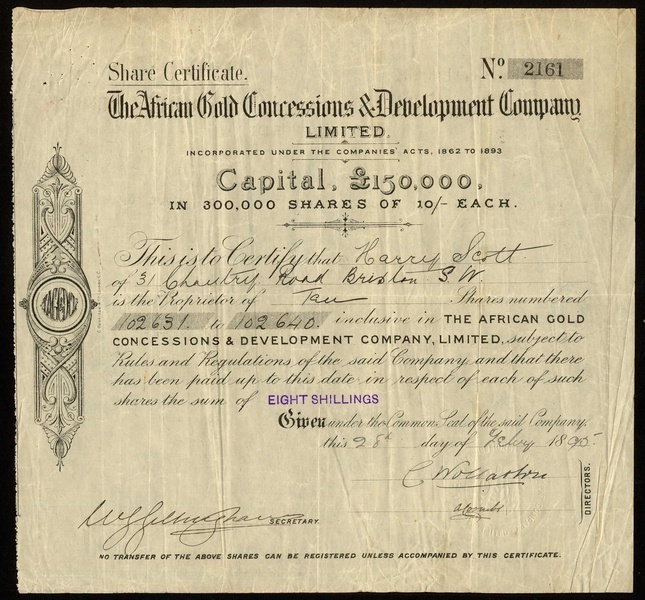 Share Certificate. No. 2161
The African Gold Concessions & Development Company
LIMITED.
INCORPORATED UNDER THE COMPANIES' ACTS, 1862 TO 1893
Capital, £150,000,
IN 300,000 SHARES OF 10/- EACH.
This is to Certify that Harry Scott
of 31 Chantry Road Brixton S.W.
is the Proprietor of Ten Shares numbered
102631. to 102640. inclusive in THE AFRICAN GOLD
CONCESSIONS & DEVELOPMENT COMPANY, LIMITED, subject to
Rules and Regulations of the said Company and that there
has been paid up to this date in respect of each of such
shares the sum of EIGHT SHILLINGS
Given under the Common Seal of the said Company,
this 28th day of Febry 1895.
C Wollaston
DIRECTORS.
SECRETARY.
NO TRANSFER OF THE ABOVE SHARES CAN BE REGISTERED UNLESS ACCOMPANIED BY THIS CERTIFICATE.